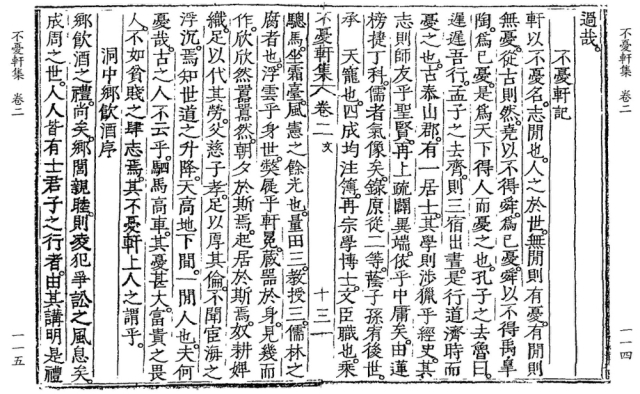 不憂軒集 卷二
一一四
過哉。
不憂軒記
軒以不憂名。志閒也。人之於世。無閒則有憂。有閒則
無憂。從古則然。堯以不得舜。爲已憂。舜以不得禹皐
陶。爲已憂。是爲天下得人而憂之也。孔子之去魯曰。
遲遲吾行。孟子之去齊。則三宿出晝。是行道濟時而
憂之也。古泰山郡。有一居士。其學則涉獵乎經史。其
志則師友乎聖賢。再上疏闢異端。依乎中庸矣。由蓮
榜捷丁科。儒者氣像矣。錄原從二等。蔭子孫宥後世。
承 天寵也。四成均注簿。再宗學博士。文臣職也。乘
不憂軒集 卷二 文
十三
驄馬。坐霜臺。風憲之餘光也。量田三。教授三。儒林之
腐者也。浮雲乎身世。獘屣乎軒冕。藏器於身。見幾而
作。欣欣然囂囂然。朝夕於斯焉。起居於斯焉。奴耕婢
織。足以代其勞。父慈子孝。足以厚其倫。不聞宦海之
浮沉。焉知世道之升降。天高地下間。一閒人也。夫何
憂哉。古之人不云乎。駟馬高車。其憂甚大。富貴之畏
人。不如貧賤之肆志焉。其不憂軒上人之謂乎。
洞中鄕飮酒序
鄕飮酒之禮。尚矣。鄕閭親睦。則凌犯爭訟之風息矣。
成周之世。人人皆有士君子之行者。由其講明是禮
不憂軒集 卷二
一一五